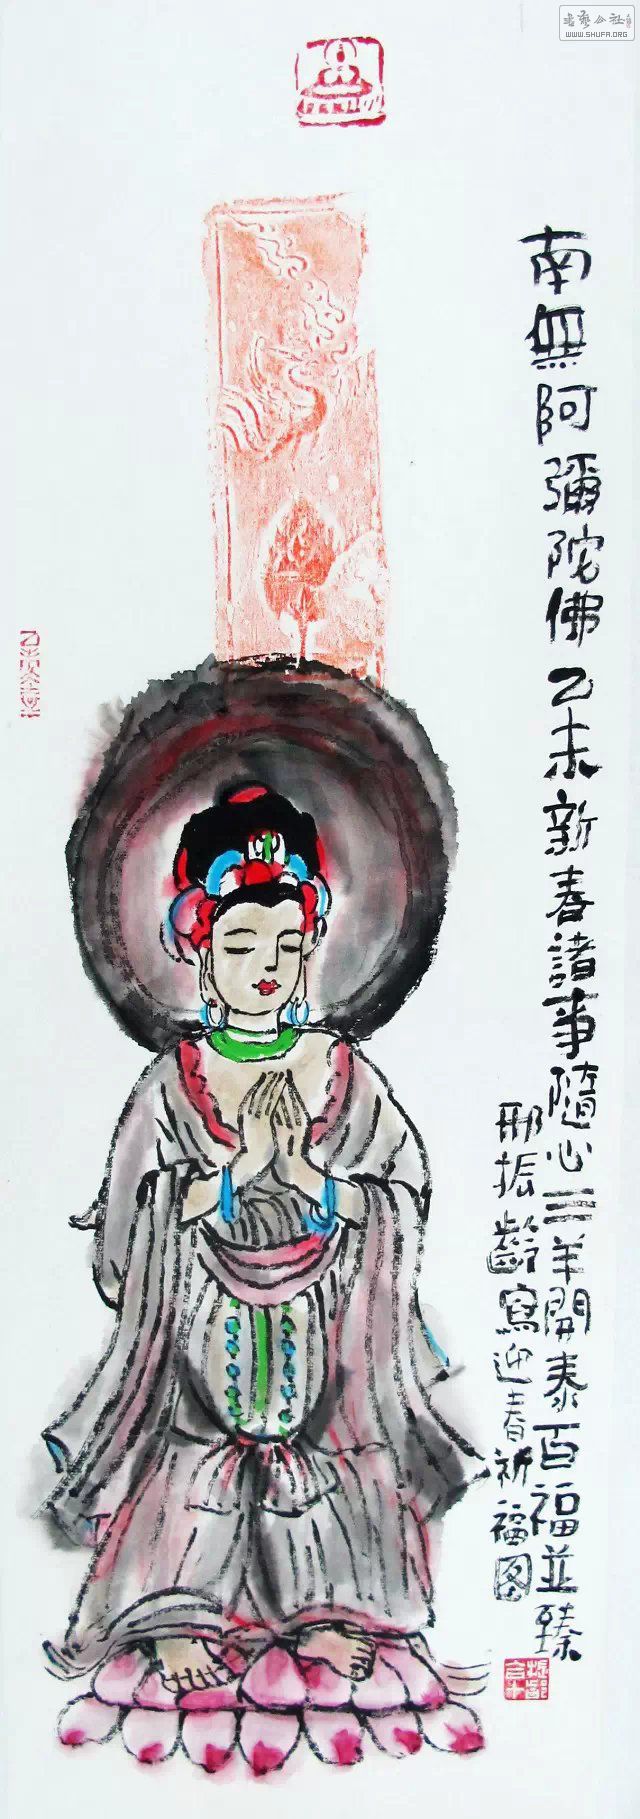 書藝公社
WWW.SHUFA.ORG
南無阿彌陀佛乙未新春諸事隨心三羊開泰百福並臻
邢振齡寫迎春祈福图